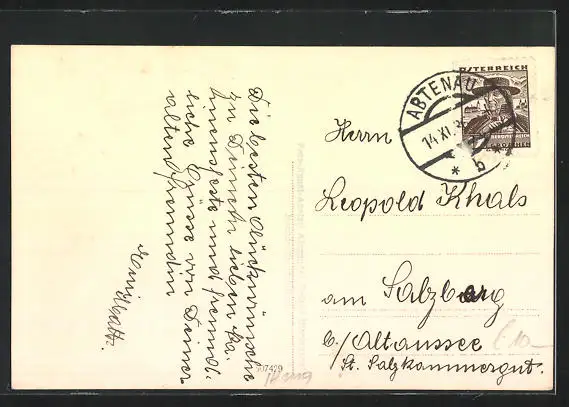 Die besten Glückwünsche
zu Deinem lieben Na-
mensfeste und freund-
liche Grüsse von Deiner
alten Freundin
ÖSTERREICH
ABTENAU
14.XI.
* b *
Herrn
Leopold Khals
am Salzberg
b/Altaussee
St. Salzkammergut.